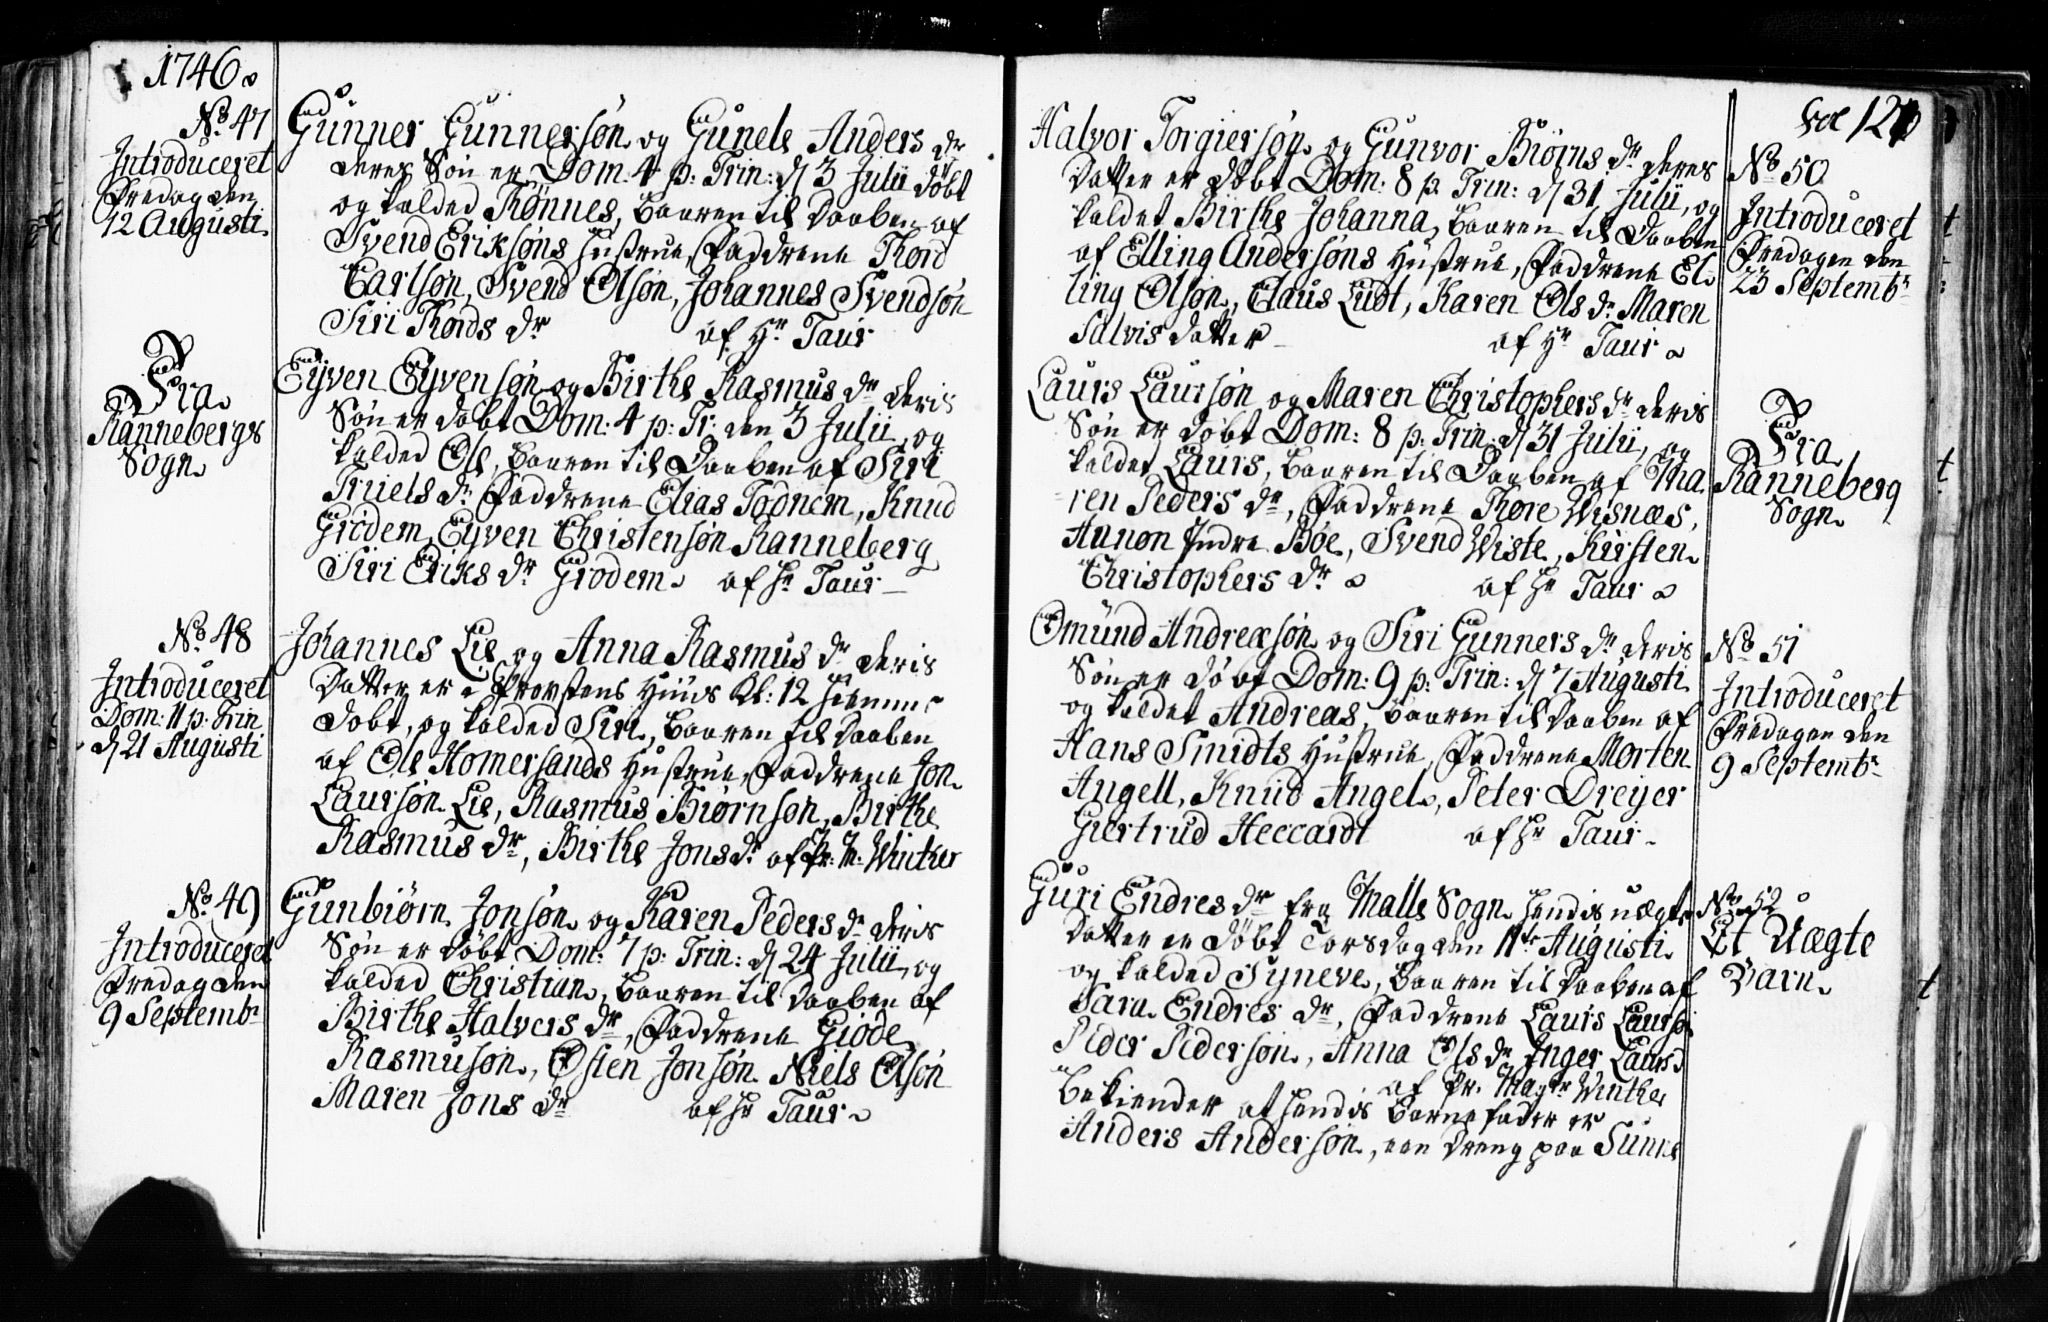 1746.
No. 47
Introduceret
Fredag den
12 Augusti
Gunner Gunnersøn og Gunele Anders dr
deres Søn er Dom: 4 p: Trin: d 3 Julii døbt
og kalded Tønnes, baaren til Daaben af
Svend Eriksøns Hustrue, Faddrene Thord
Carlsøn, Svend Olsøn, Johannes Svendsøn
Siri Thords dr af Hr Taur
Fra
Rannebergs
Sogn
Eyven Eyvensøn og Birthe Rasmus dr deris
Søn er døbt Dom: 4 p: Tr: den 3 Julii, og
kalded Ole, baaren til Daaben af Siri
Truels dr Faddrene Elias Todnem, Knud
Grødem, Eyven Christensøn Ranneberg
Siri Eriks dr Grødem af Hr Taur
No. 48
Introduceret
Dom: 11 p: Trin
d 21 Augusti
Johannes Lie og Anna Rasmus dr deris
Datter er i Provstens Huus Kl: 12 hiemme
døbt, og kalded Siri, baaren til Daaben
af Ole Homersands Hustrue, Faddrene Jon
Laursøn Lie, Rasmus Biørnsøn, Birthe
Rasmus dr, Birthe Jons dr af Pr: M: Winther
No. 49
Introduceret
Fredag den
9 Septembr
Gunbiørn Jonsøn og Karen Peders dr deris
Søn er døbt Dom: 7 p: Trin: d 24 Julii, og
kalded Christian, baaren til Daaben af
Birthe Halvors dr, Faddrene Giøde
Rasmusøn, Østen Jonsøn Niels Olsøn
Maren Jons dr af Hr Taur
121
Halvor Torgiersøn og Gunvor Biørns dr deres
Datter er døbt Dom: 8 p: Trin: d 31 Julii, og
kaldet Birthe Johanna, baaren til Daaben
af Elling Andersøns Hustrue, Faddrene El-
ling Olsøn, Claus Ludt, Karen Ols dr Maren
Salvis datter af Hr Taur
No 50
Introduceret
Fredagen den
23 Septembr
Laurs Laursøn og Maren Christophers dr deris
Søn er døbt Dom: 8 p: Trin: d 31 Julii, og
kaldet Laurs, baaren til Daaben af Ma-
ren Peders dr, Faddrene Thore Wisnæs,
Aanøn Indre Bøe, Svend Wiste, Kirsten
Christophers dr af Hr Taur
Fra
Ranneberg
Sogn
Omund Andreæsøn og Siri Gunners dr deris
Søn er døbt Dom: 9 p: Trin: d 7 Augusti
og kaldet Andreas, baaren til Daaben af
Hans Smidts Hustrue, Faddrene Morten
Angell, Knud Angel, Peter Dreyer
Giertrud Heccardt af Hr Taur
No 51
Introduceret
Fredagen den
9 Septembr
Guri Endres dr fra Malle Sogn hendis uægte
Datter er døbt Torsdag den 11te Augusti
og kalded Syneve, baaren til Daaben af
Sara Endres dr, Faddrene Laurs Laursøn
Peder Pedersøn, Anna Ols dr Inger Laurs d
af Pr. Magr Winther
bekiender at hendis Barnefader er
Anders Andersøn, een dreng paa Sunde
No. 52
Et Uægte
Barn